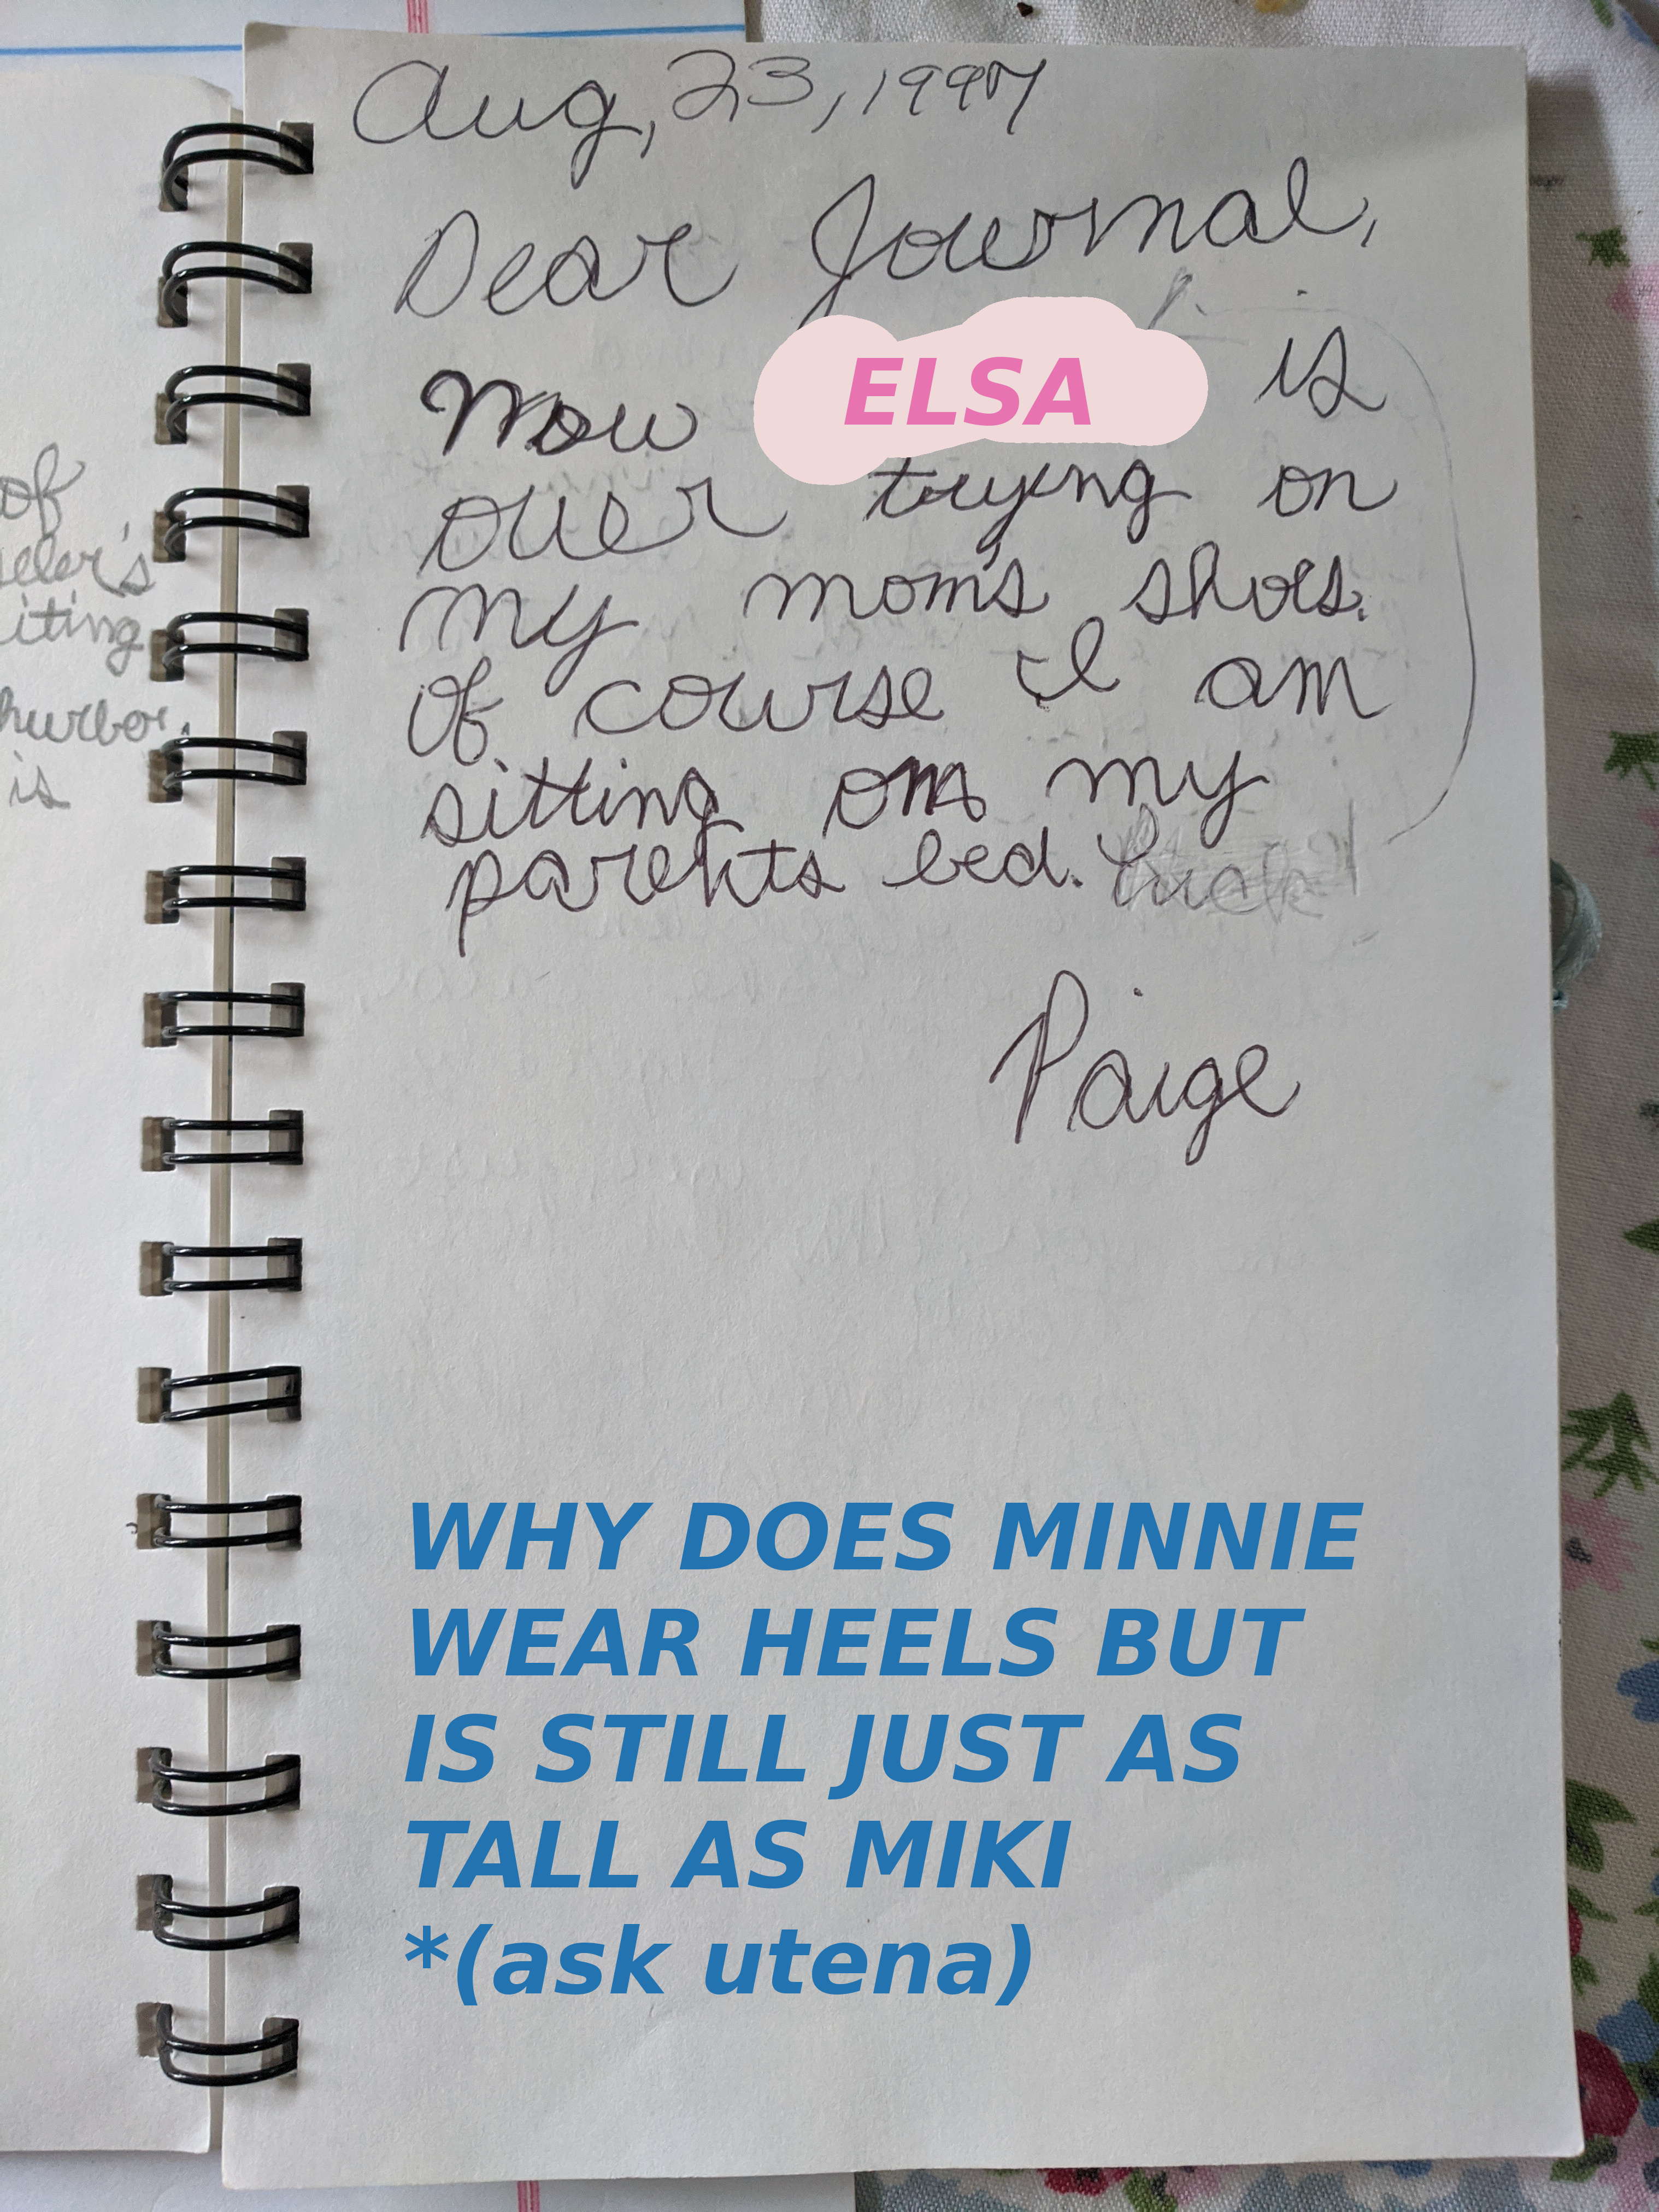 of
iting
is
Aug, 23, 1997
Dear Journal,
Now ELSA is
over trying on
my mom's shoes.
Of course I am
sitting on my
parents bed.
Paige
WHY DOES MINNIE
WEAR HEELS BUT
IS STILL JUST AS
TALL AS MIKI
*(ask utena)